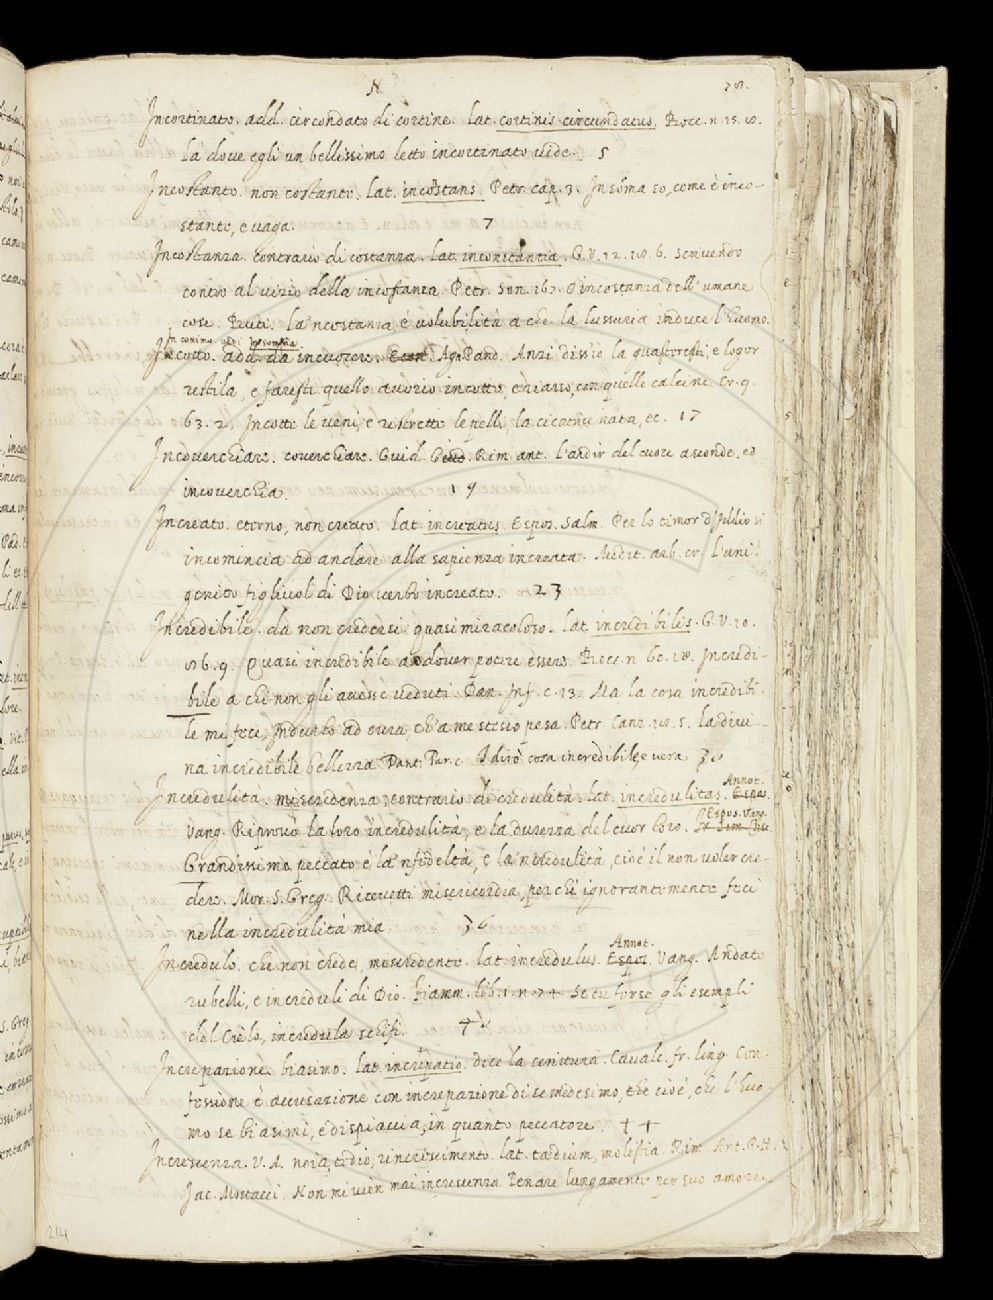 N
Incortinato. add. circondato di cortine. lat. cortinis circumdatus. Bocc. n. 15. 10.
là dove egli un bellissimo letto incortinato vide. 5
Incostante. non costante. lat. incostans. Petr. cap. 3. In sõma so, come è inco-
stante, e vaga. 7
Incostanza. Contrario di costanza. lat. inconstantia. G. V. 12. 6. scrivendo
contro al vizio della incostanza. Petr. Son. O incostanzia dell' umane
cose. la ncostanza, è volubilità a che la lussuria induce l'huomo.
In conimo
Incotto. add. da incuocere. Agn Pand. Anzi diss'io la guasteresti, e logor-
resti la, e faresti quello avorio incotto, e riarso, con quelle calcine. Cr. 9.
63. 2. Incotte le veni, e ristrette le pelli, la cicatrice nata, ec. 17
Incoverchiare. coverchiare. Guid. G. Rim. ant. l'ardir del cuore asconde, ed
incoverchia. 19
Increato. eterno, non creato. lat. increatus. Espos. Salm. Per lo timor d'Iddio si
incomincia ad andare alla sapienza increata. Medit. arb. cr. l'uni-
genito figliuol di Dio verbo increato. 23
Incredibile. da non credersi: quasi miracoloso. lat. incredibilis. G. V. 10.
86. 9. Quasi incredibile a dover potere essere. Bocc. n. 60. 18. Incredi-
bile a chi non gli avesse veduti. Dan. Inf. c. 13. Ma la cosa incredibi-
le mi fece, Indurlo ad ovra, ch'a me stesso pesa. Petr. Canz. 5. la divi-
na incredibile bellezza. Dant. Par. c. I dirò cosa incredibile, e vera
Annot.
Incredulità. miscredenza, contrario di credulità. lat. incredulitas. Espos.
Espos. Vang.
Vang. Riprovò la loro incredulità, e la durezza del cuor loro.
Grandissimo peccato è la nfideltà, e la ncredulità, cioè il non voler cre-
dere. Mor. S. Greg. Ricevetti misericordia, perchè ignorantemente feci
nella incredulità mia. 36
Annot.
Incredulo. che non crede, miscredente. lat. incredulus. Espos. Vang. Andate
rubelli, e increduli di Dio. fiamm. lib. 1. n. 74. Se tu forse gli esempli
del Cielo, incredula schifi.
Increpazione. biasimo. lat. increpatio. dice la scrittura. Cavalc. fr. ling. Con-
fessione è accusazione con increpazione di se medesimo, cioè, che l'huo-
mo se biasimi, e dispiaccia, in quanto peccatore. 44
Increscenza. V. A. noia, tedio, rincrescimento. lat. tædium, molestia. Rim. Ant. P. N.
Jac. Mostacci. Non mi vien mai increscenza Penare lungamente per suo amore
214